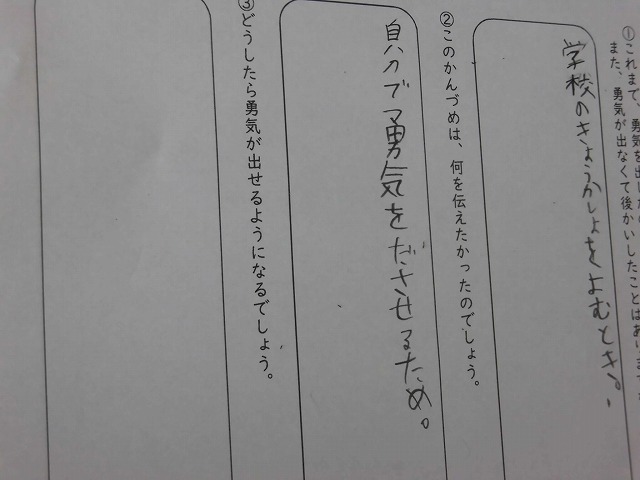 ①これまで、勇気を出した
また、勇気が出なくて後かいしたことはあります
学校のきょうかしょをよむとき。
②このかんづめは、何を伝えたかったのでしょう。
自力で勇気をださせるため。
③どうしたら勇気が出せるようになるでしょう。